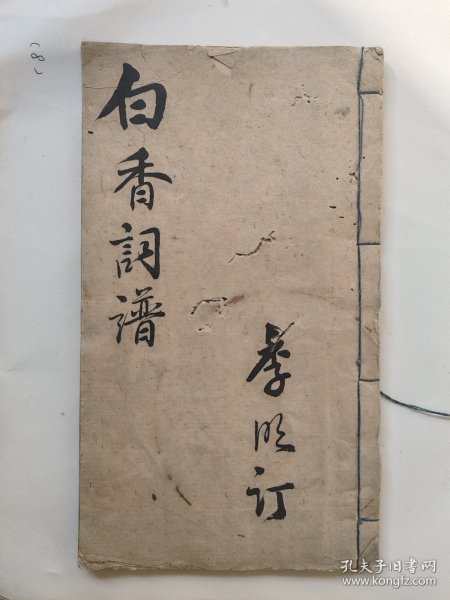 白香詞譜
明订
(8)
孔夫子旧书网
www.kongfz.com